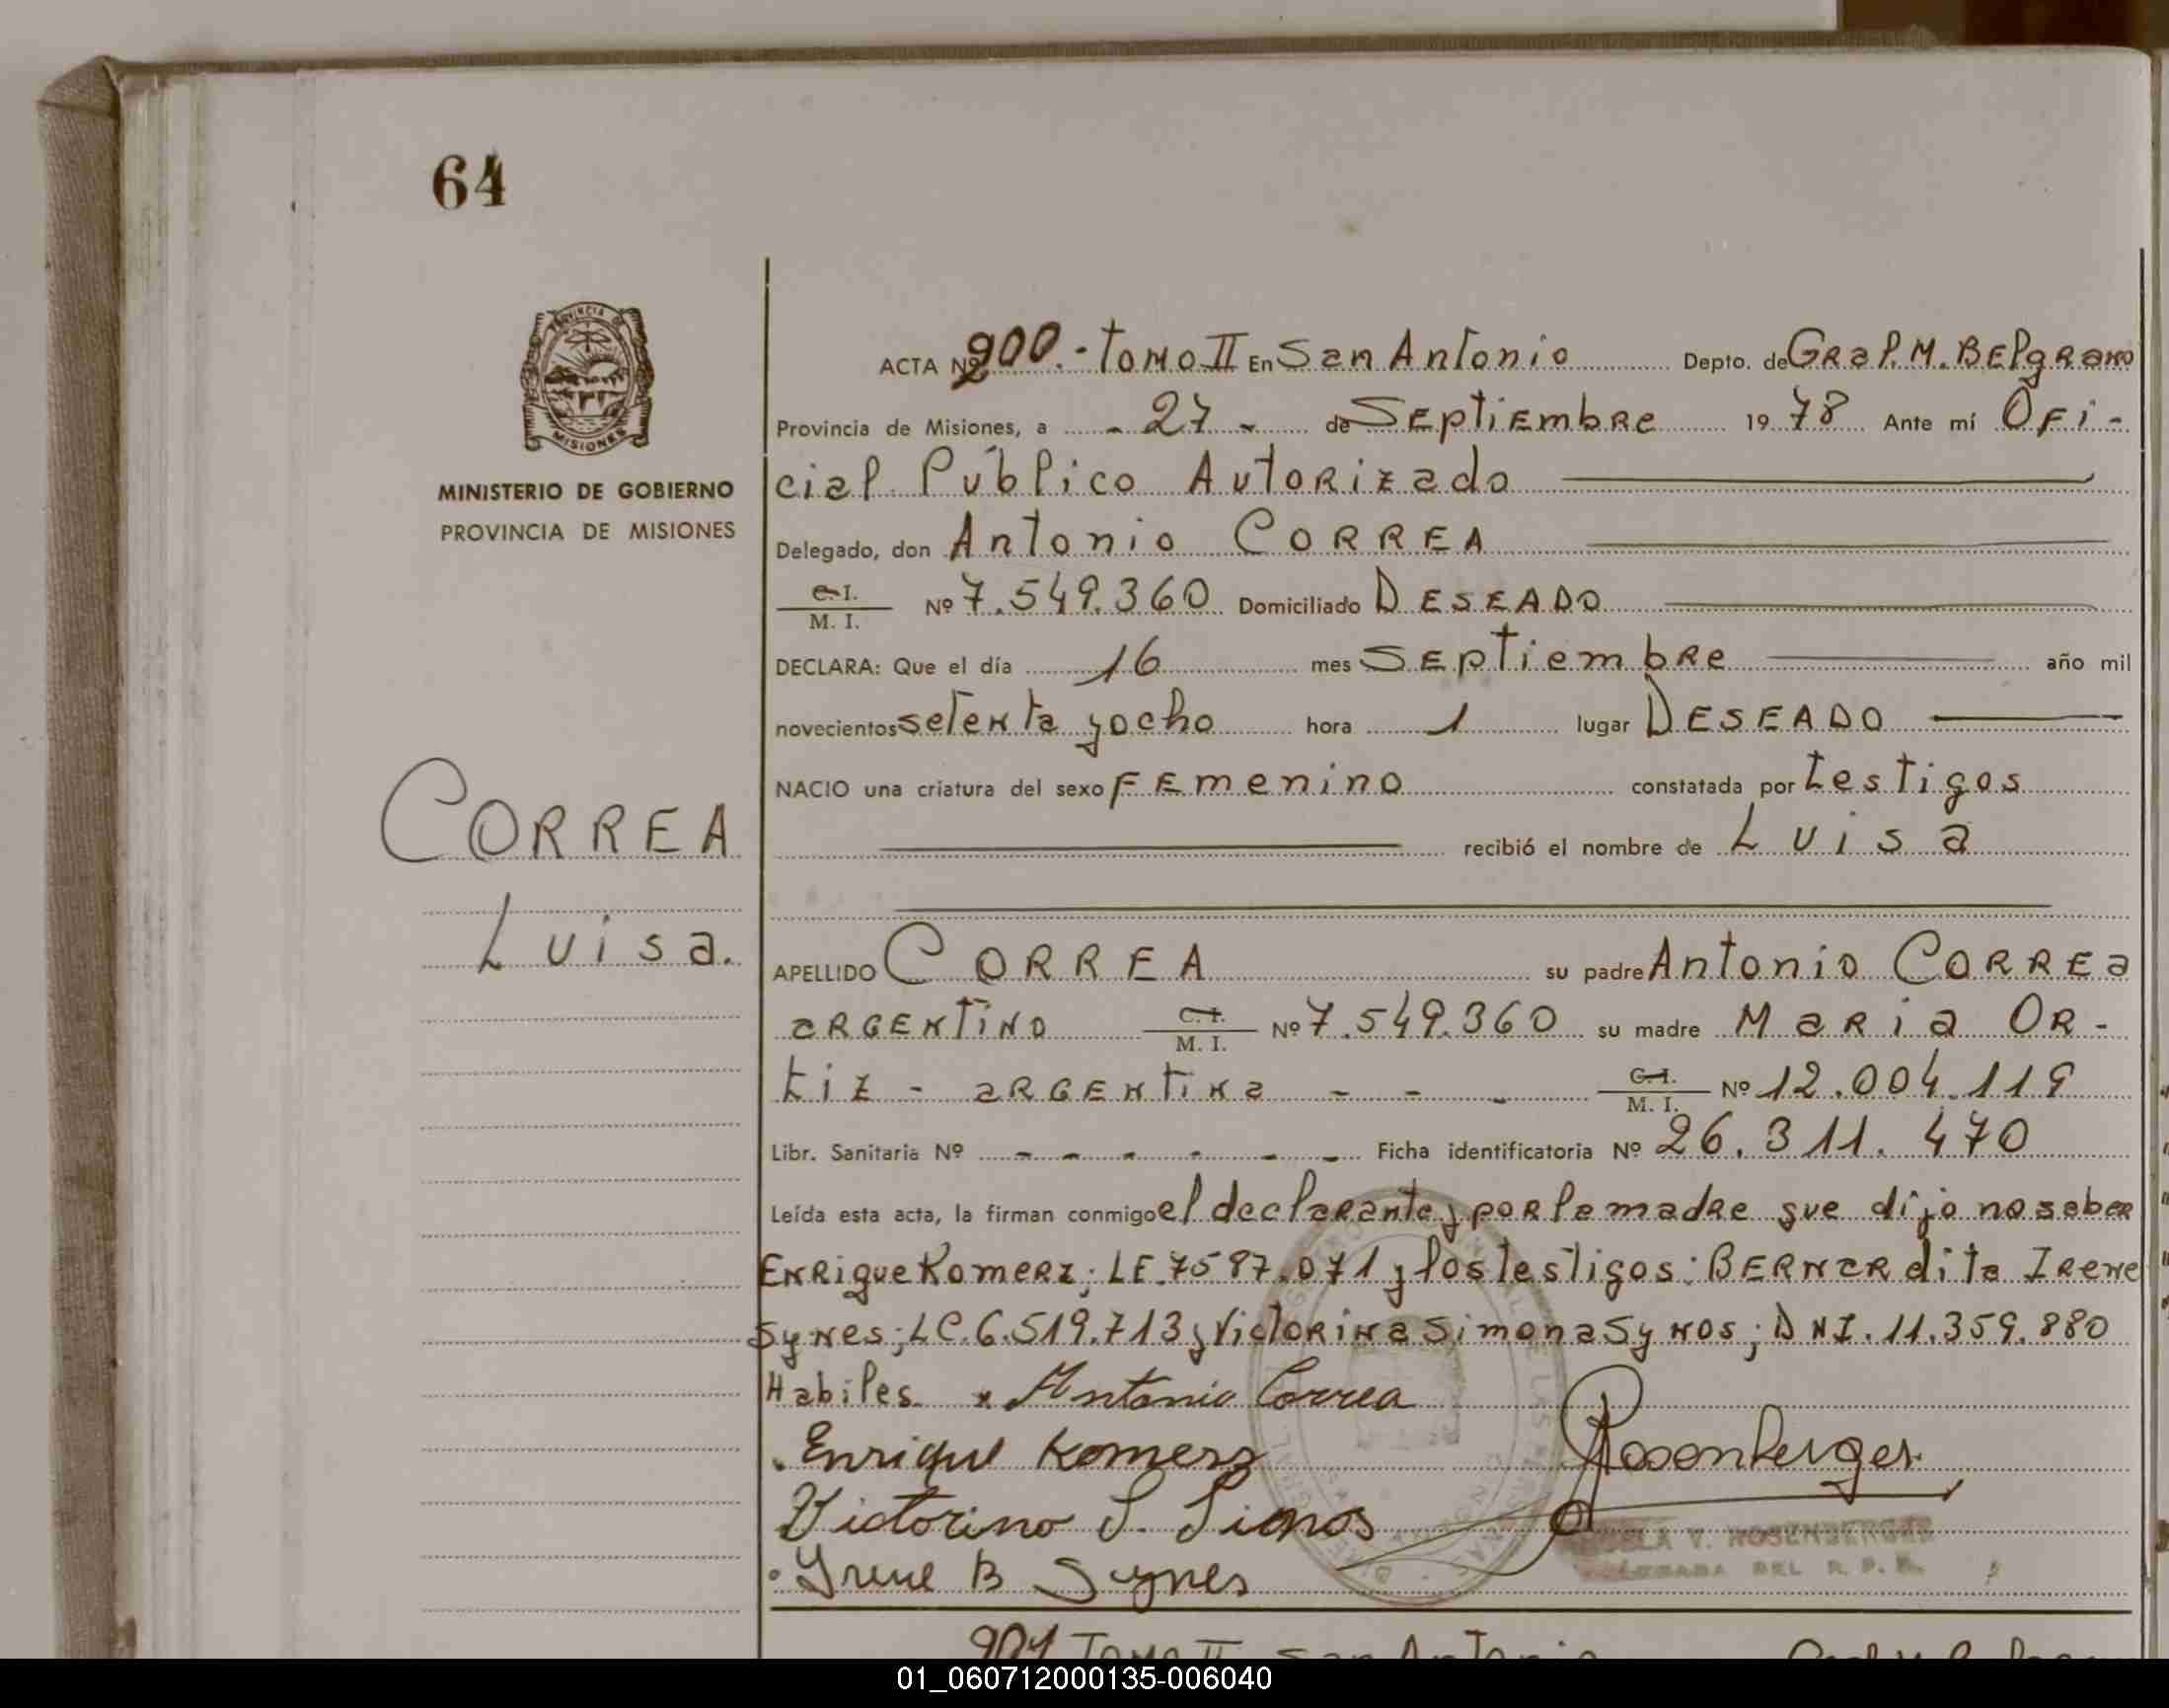 64
PROVINCIA DE
MISIONES
MINISTERIO DE GOBIERNO
PROVINCIA DE MISIONES
CORREA
Luisa.
ACTA Nº 900.- TOMO II En San Antonio Depto. de GRal. M. BElgRano
Provincia de Misiones, a - 27 - de SEptiEmbRe 1978 Ante mí OFi-
cial Público AutoRizado
Delegado, don Antonio CORREA
C.I. / M. I. Nº 7.549.360 Domiciliado DESEADO
DECLARA: Que el día 16 mes SEptiembRe año mil
novecientos setenta y ocho hora 1 lugar DESEADO
NACIO una criatura del sexo FEmenino constatada por testigos
recibió el nombre de Luisa
APELLIDO CORREA su padre Antonio CORREa
aRGENTiNO C.I. / M. I. Nº 7.549.360 su madre MaRia OR-
tiz - aRGENtiNa - - - C.I. / M. I. Nº 12.004.119
Libr. Sanitaria Nº - - - - - - Ficha identificatoria Nº 26.311.470
Leída esta acta, la firman conmigo el declaRante y poR la madRe que dijo no sabeR
ENRique KomeRz; LE.7587.071 y los testigos: BERNaRdita IReNe
SyNes; LC.6.519.713 y VictoRiNa Simona SyNos; DNI.11.359.880
Habiles. x Antonio Correa
Enrique Komerz
Rosenberger
Victorino S. Sinos
Irene B Synes
V. ROSENBERGER
DEL R. P. P.
901 TOMO II San Antonio
01_060712000135-006040